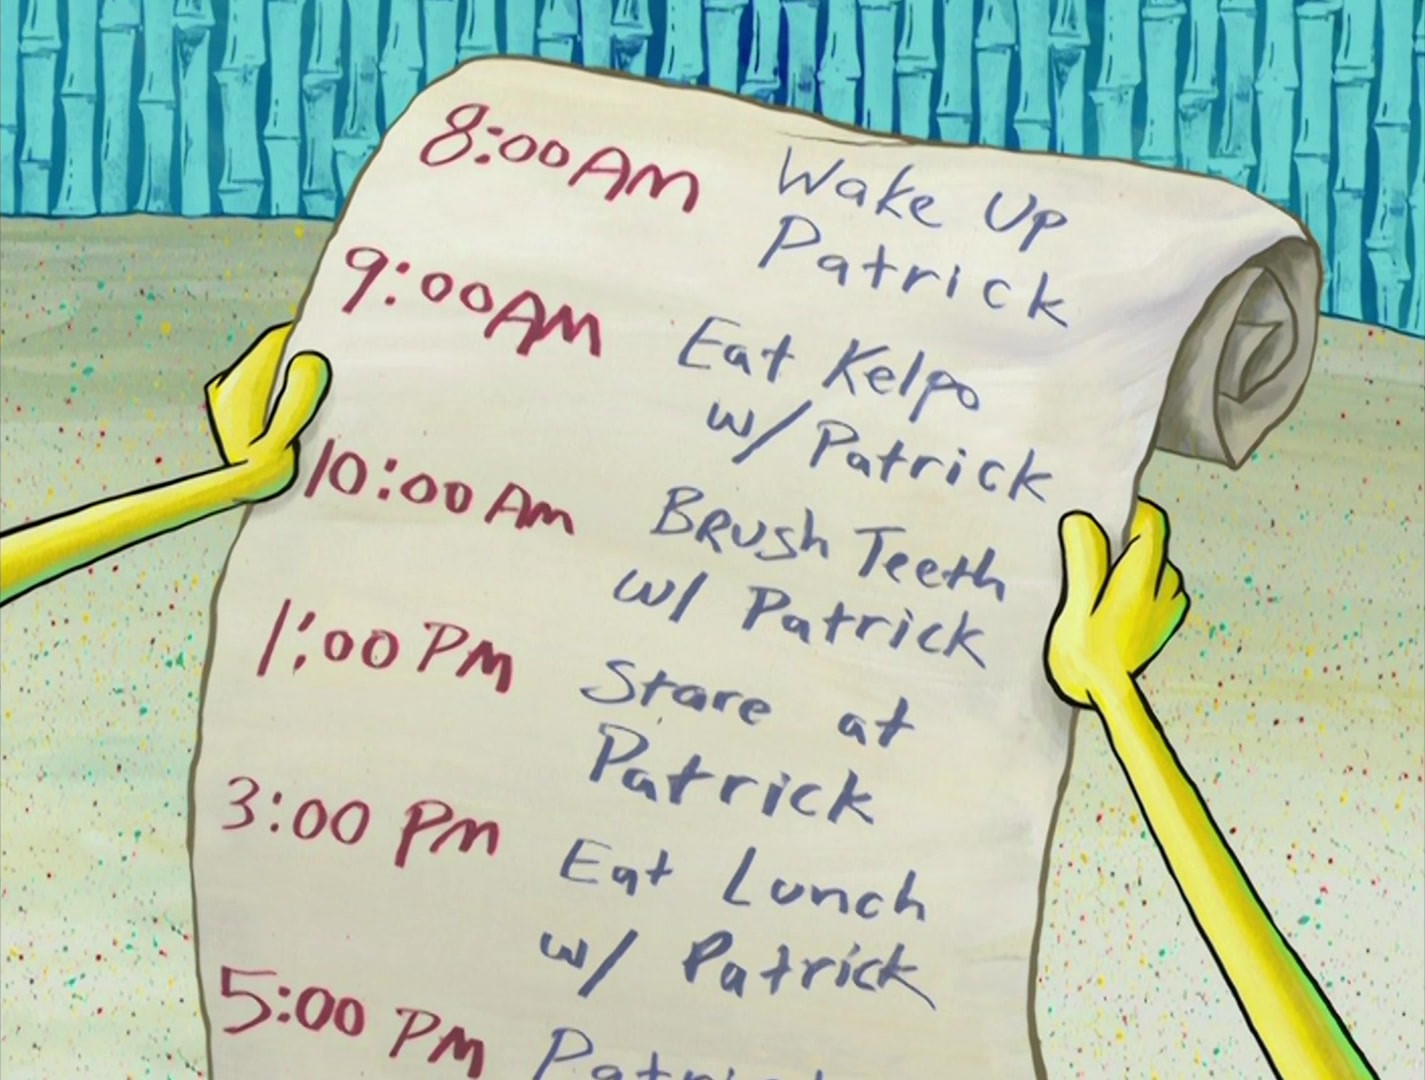 8:00 AM Wake Up
Patrick
9:00 AM Eat Kelpo
w/ Patrick
10:00 Am Brush Teeth
w/ Patrick
1:00 PM Stare at
Patrick
3:00 Pm Eat Lunch
w/ Patrick
5:00 PM